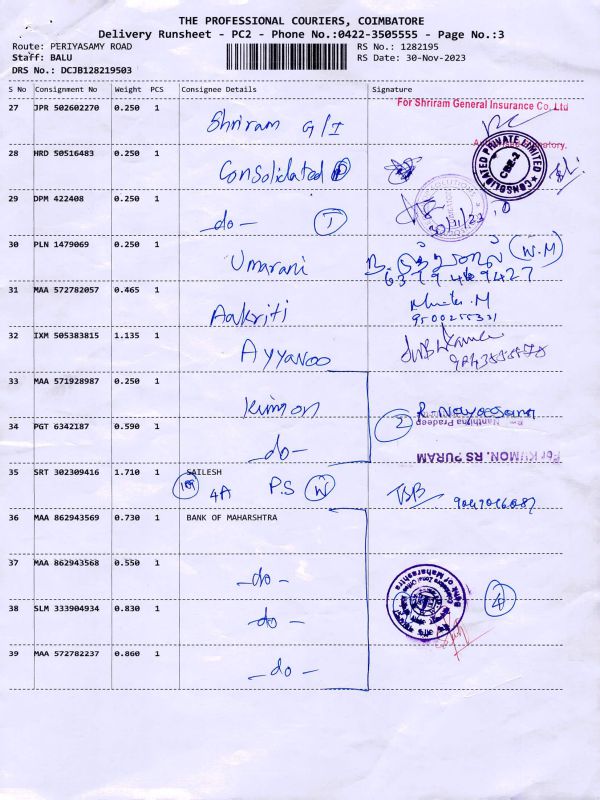 THE PROFESSIONAL COURIERS, COIMBATORE
Delivery Runsheet - PC2 - Phone No.:0422-3505555 - Page No.:3
Route: PERIYASAMY ROAD RS No.: 1282195
Staff: BALU RS Date: 30-Nov-2023
DRS No.: DCJB128219503
S No Consignment No Weight PCS Consignee Details Signature
27 JPR 502602270 0.250 1 Shriram G/I
For Shriram General Insurance Co. Ltd
28 HRD 50516483 0.250 1 Consolidated
CONSOLIDATED PRIVATE LIMITED
CBE-2
29 DPM 422408 0.250 1 -do- 1
30/11/23
30 PLN 1479069 0.250 1 Umarani (W.M)
31 MAA 572782057 0.465 1 Aakriti
9500255331
32 IXM 505383815 1.135 1 Ayyanoo
33 MAA 571928987 0.250 1 Kimon
34 PGT 6342187 0.590 1 -do- 2
For KUMON, RS PURAM
35 SRT 302309416 1.710 1 SAILESH
4A P.S W
36 MAA 862943569 0.730 1 BANK OF MAHARSHTRA
37 MAA 862943568 0.550 1 -do-
Bank of Maharashtra
4
38 SLM 333904934 0.830 1 -do-
39 MAA 572782237 0.860 1 -do-